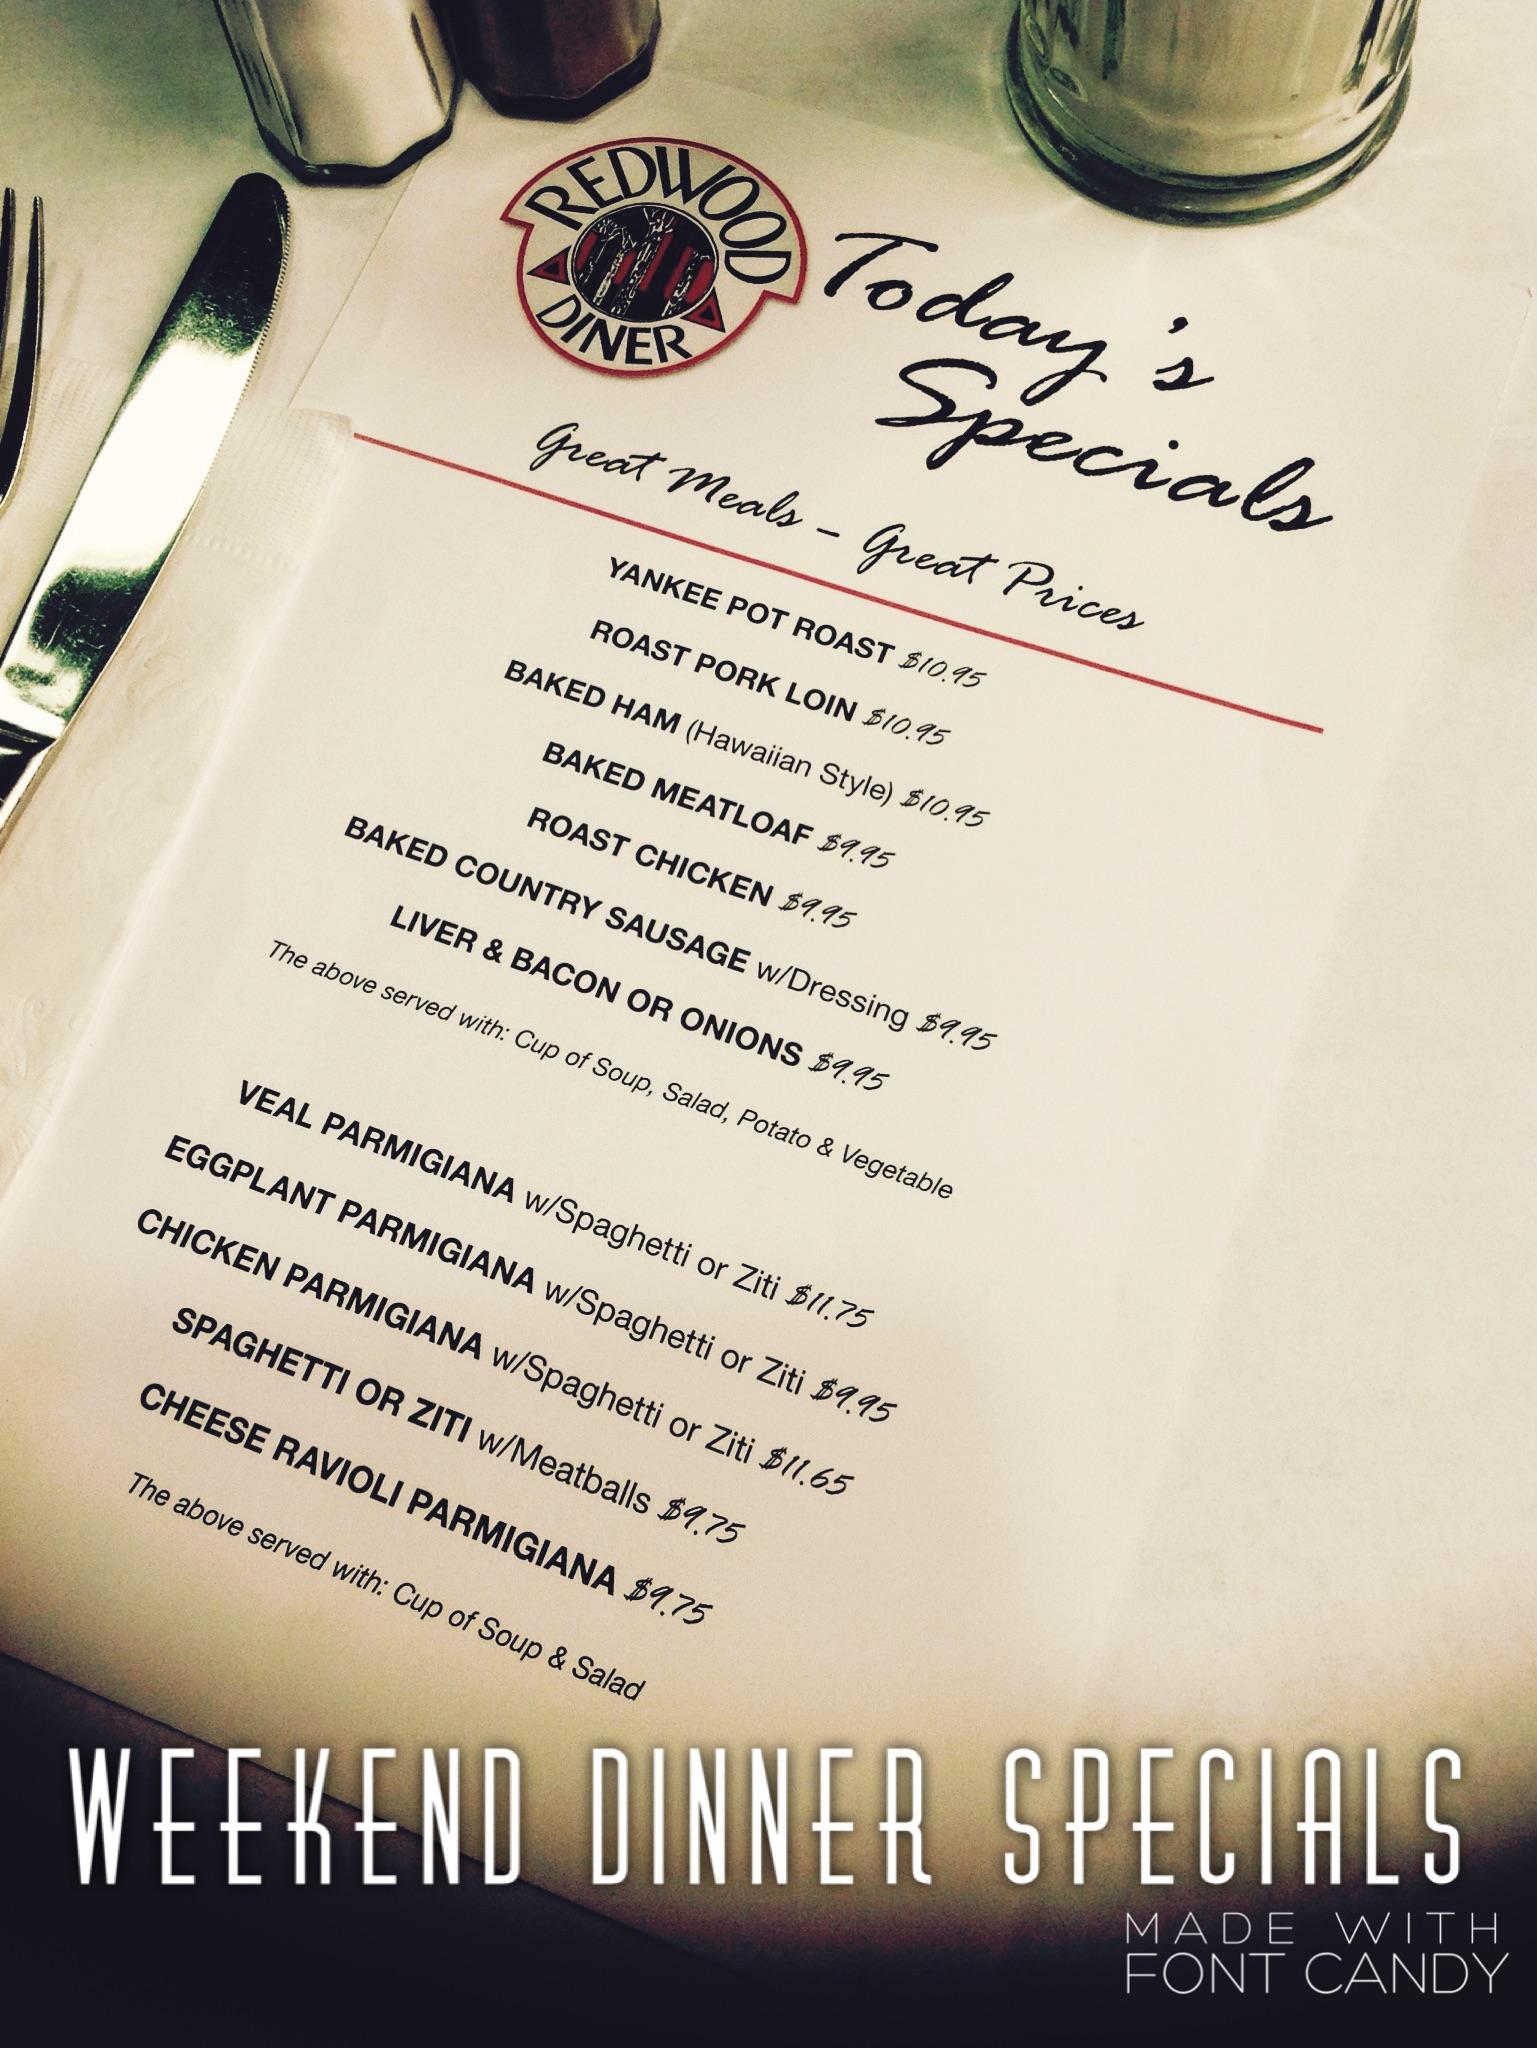 REDWOOD
DINER
Today's
Specials
Great Meals – Great Prices
YANKEE POT ROAST $10.95
ROAST PORK LOIN $10.95
BAKED HAM (Hawaiian Style) $10.95
BAKED MEATLOAF $9.95
ROAST CHICKEN $9.95
BAKED COUNTRY SAUSAGE w/Dressing $9.95
LIVER & BACON OR ONIONS $9.95
The above served with: Cup of Soup, Salad, Potato & Vegetable
VEAL PARMIGIANA w/Spaghetti or Ziti $11.75
EGGPLANT PARMIGIANA w/Spaghetti or Ziti $9.95
CHICKEN PARMIGIANA w/Spaghetti or Ziti $11.65
SPAGHETTI OR ZITI w/Meatballs $9.75
CHEESE RAVIOLI PARMIGIANA $9.75
The above served with: Cup of Soup & Salad
WEEKEND DINNER SPECIALS
MADE WITH
FONT CANDY